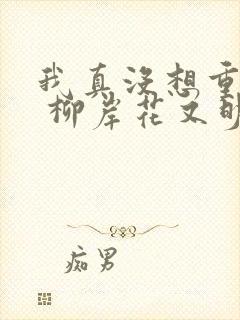 我真没想重
柳岸花又明
痴男